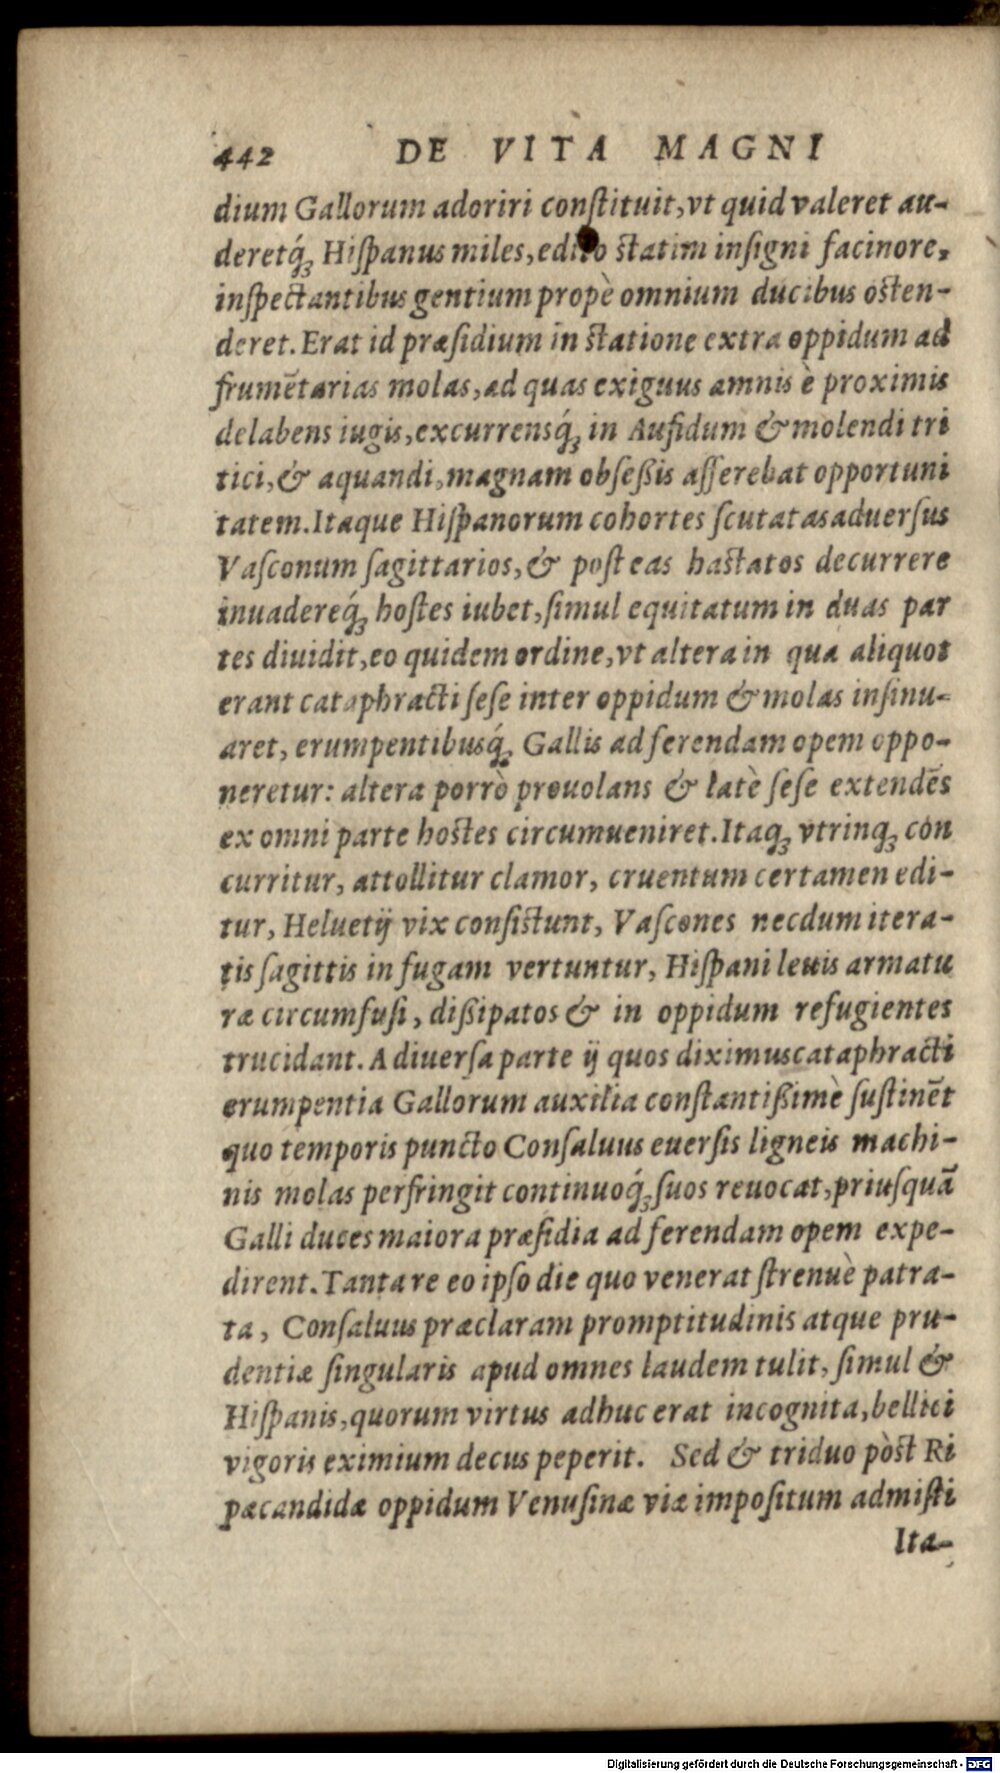 442 DE VITA MAGNI
dium Gallorum adoriri conſtituit, vt quid valeret au-
deretq́ꝫ Hiſpanus miles, edito ſtatim inſigni facinore,
inſpectantibus gentium propè omnium ducibus oſten-
deret. Erat id præſidium in ſtatione extra oppidum ad
frumētarias molas, ad quas exiguus amnis è proximis
delabens iugis, excurrensq́ꝫ in Aufidum & molendi tri
tici, & aquandi, magnam obſeßis afferebat opportuni
tatem. Itaque Hiſpanorum cohortes ſcutatas aduerſus
Vaſconum ſagittarios, & poſt eas haſtatos decurrere
inuadereq́ꝫ hoſtes iubet, ſimul equitatum in duas par
tes diuidit, eo quidem ordine, vt altera in qua aliquot
erant cataphracti ſeſe inter oppidum & molas inſinu-
aret, erumpentibusq́ꝫ Gallis ad ferendam opem oppo-
neretur: altera porrò prouolans & latè ſeſe extendēs
ex omni parte hoſtes circumueniret. Itaqꝫ vtrinqꝫ con
curritur, attollitur clamor, cruentum certamen edi-
tur, Heluetij vix conſiſtunt, Vaſcones necdum itera-
tis ſagittis in fugam vertuntur, Hiſpani leuis armatu
ræ circumfuſi, dißipatos & in oppidum refugientes
trucidant. A diuerſa parte ij quos diximus cataphracti
erumpentia Gallorum auxilia conſtantißimè ſuſtinēt
quo temporis puncto Conſaluus euerſis ligneis machi-
nis molas perfringit continuoq́ꝫ ſuos reuocat, priuſquā
Galli duces maiora præſidia ad ferendam opem expe-
dirent. Tanta re eo ipſo die quo venerat ſtrenuè patra-
ta, Conſaluus præclaram promptitudinis atque pru-
dentiæ ſingularis apud omnes laudem tulit, ſimul &
Hiſpanis, quorum virtus adhuc erat incognita, bellici
vigoris eximium decus peperit. Sed & triduo pòſt Ri
pæcandidæ oppidum Venuſinæ viæ impoſitum admiſti
Ita-
Digitalisierung gefördert durch die Deutsche Forschungsgemeinschaft - DFG